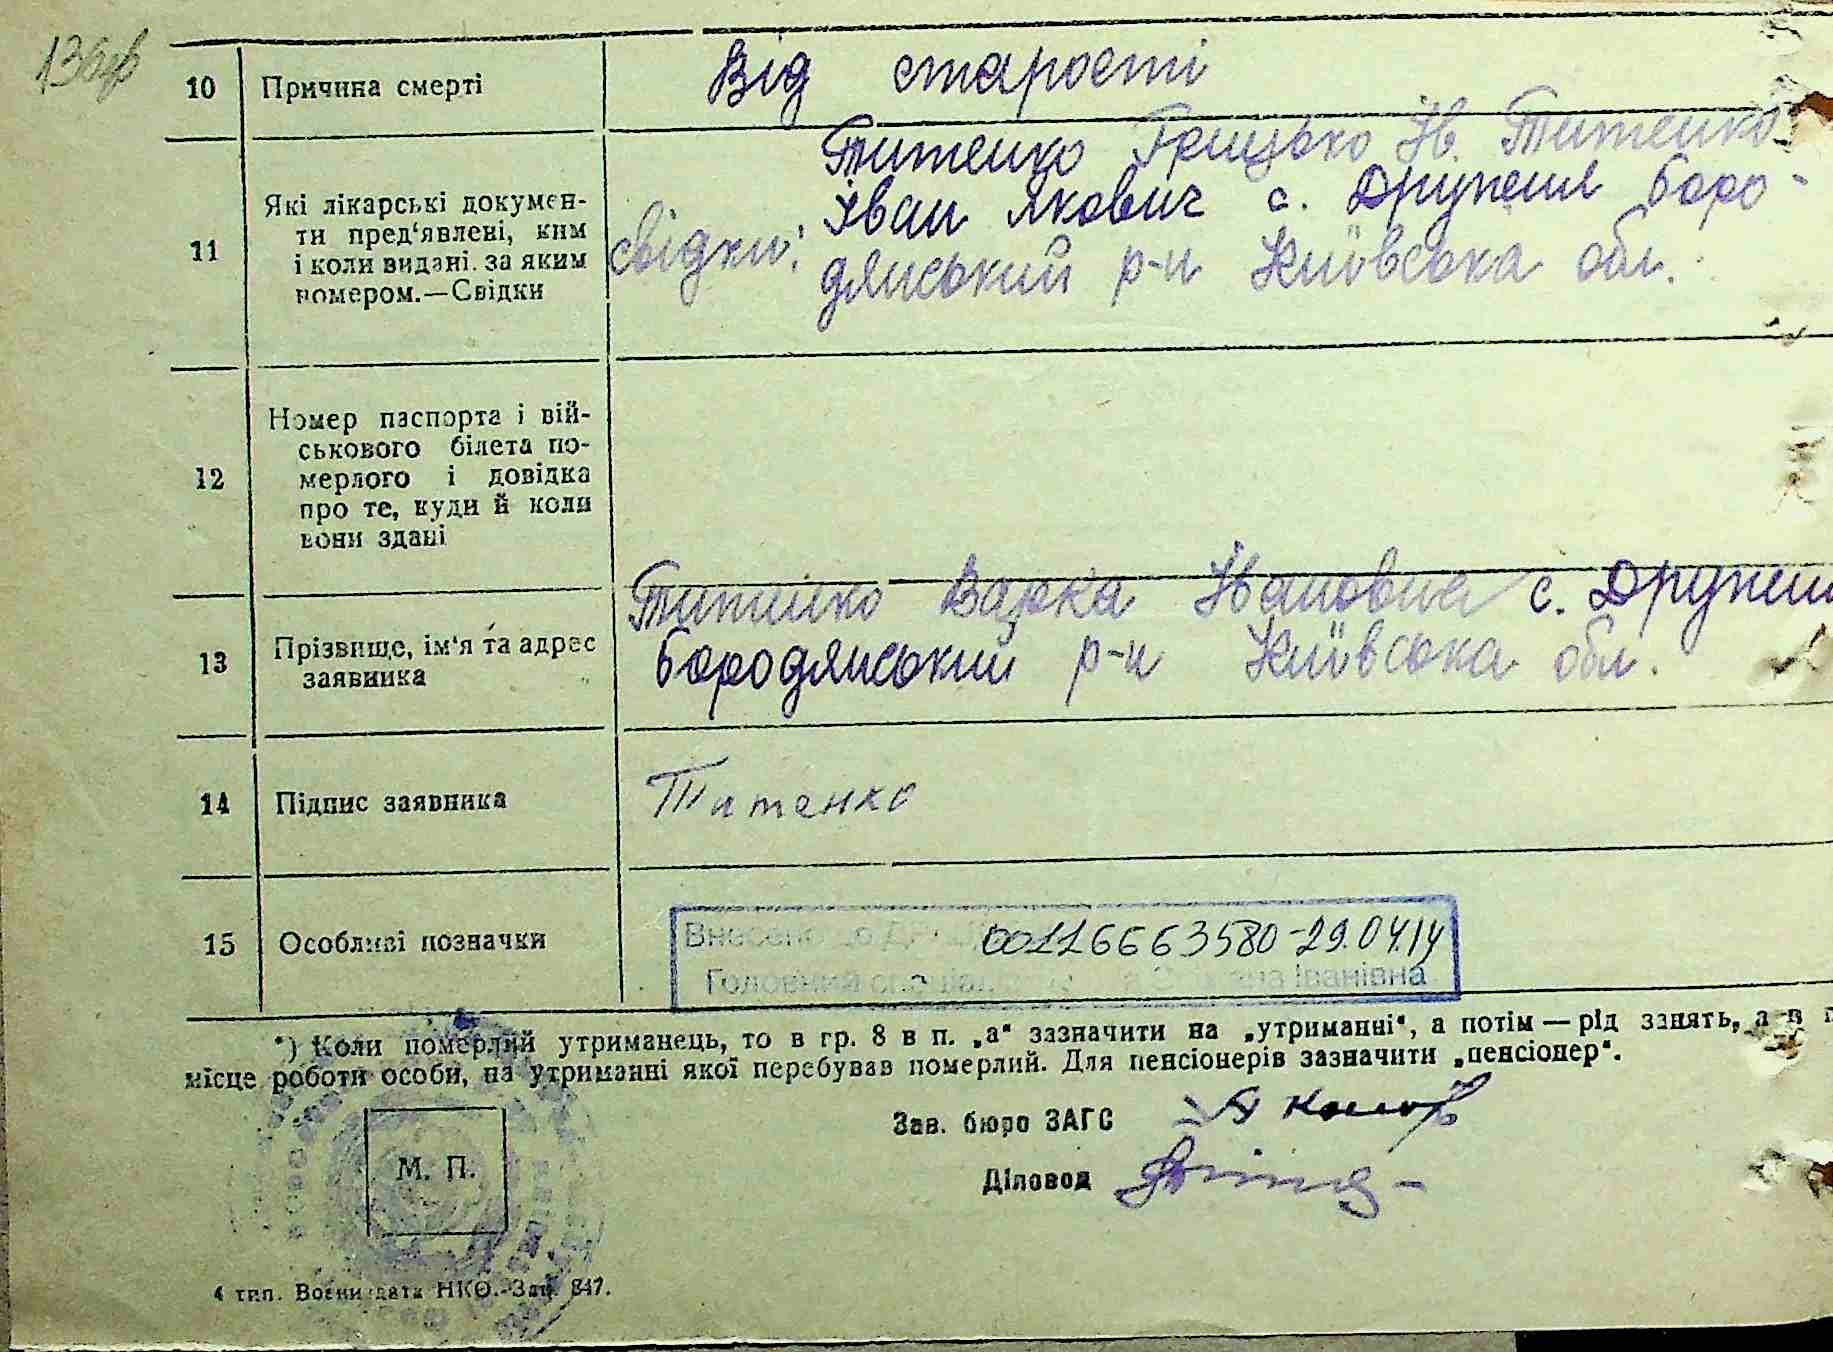 136зв
10 Причина смерті Від старості
11 Які лікарські докумен-
ти пред'явлені, ким
і коли видані. за яким
номером.—Свідки
свідки: Титенко Грицько Ів. Титенко
Іван Якович с. Дружня Боро-
дянський р-н Київська обл.
12 Номер паспорта і вій-
ськового білета по-
мерлого і довідка
про те, куди й коли
вони здані
13 Прізвище, ім'я та адрес
заявника
Титенко Варка Івановна с. Дружня
Бородянський р-н Київська обл.
14 Підпис заявника Титенко
15 Особливі позначки
Внесено до 00116663580-29.04.14
Головний Іванівна
*) Коли померлий утриманець, то в гр. 8 в п. „а" зазначити на „утриманні", а потім — рід занять, а в п
місце роботи особи, на утриманні якої перебував померлий. Для пенсіонерів зазначити „пенсіонер".
Зав. бюро ЗАГС
Діловод
М. П.
4 тип. Воениздата НКО. Зак. 847.